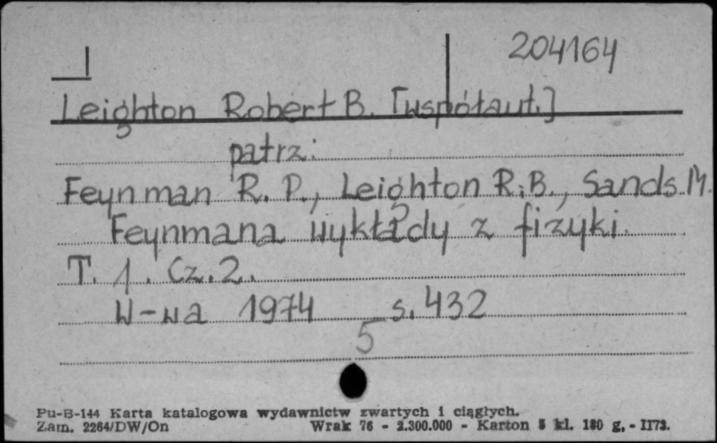 204164
Leighton Robert B. [współaut.]
patrz:
Feynman R. P., Leighton R.B., Sands M.
Feynmana wykłady z fizyki.
T. 1. Cz. 2.
W-wa 1974 s. 432
5
Pu-B-144 Karta katalogowa wydawnictw zwartych i ciągłych.
Zam. 2264/DW/On Wrak 76 - 2.300.000 - Karton 5 kl. 180 g, - II73.